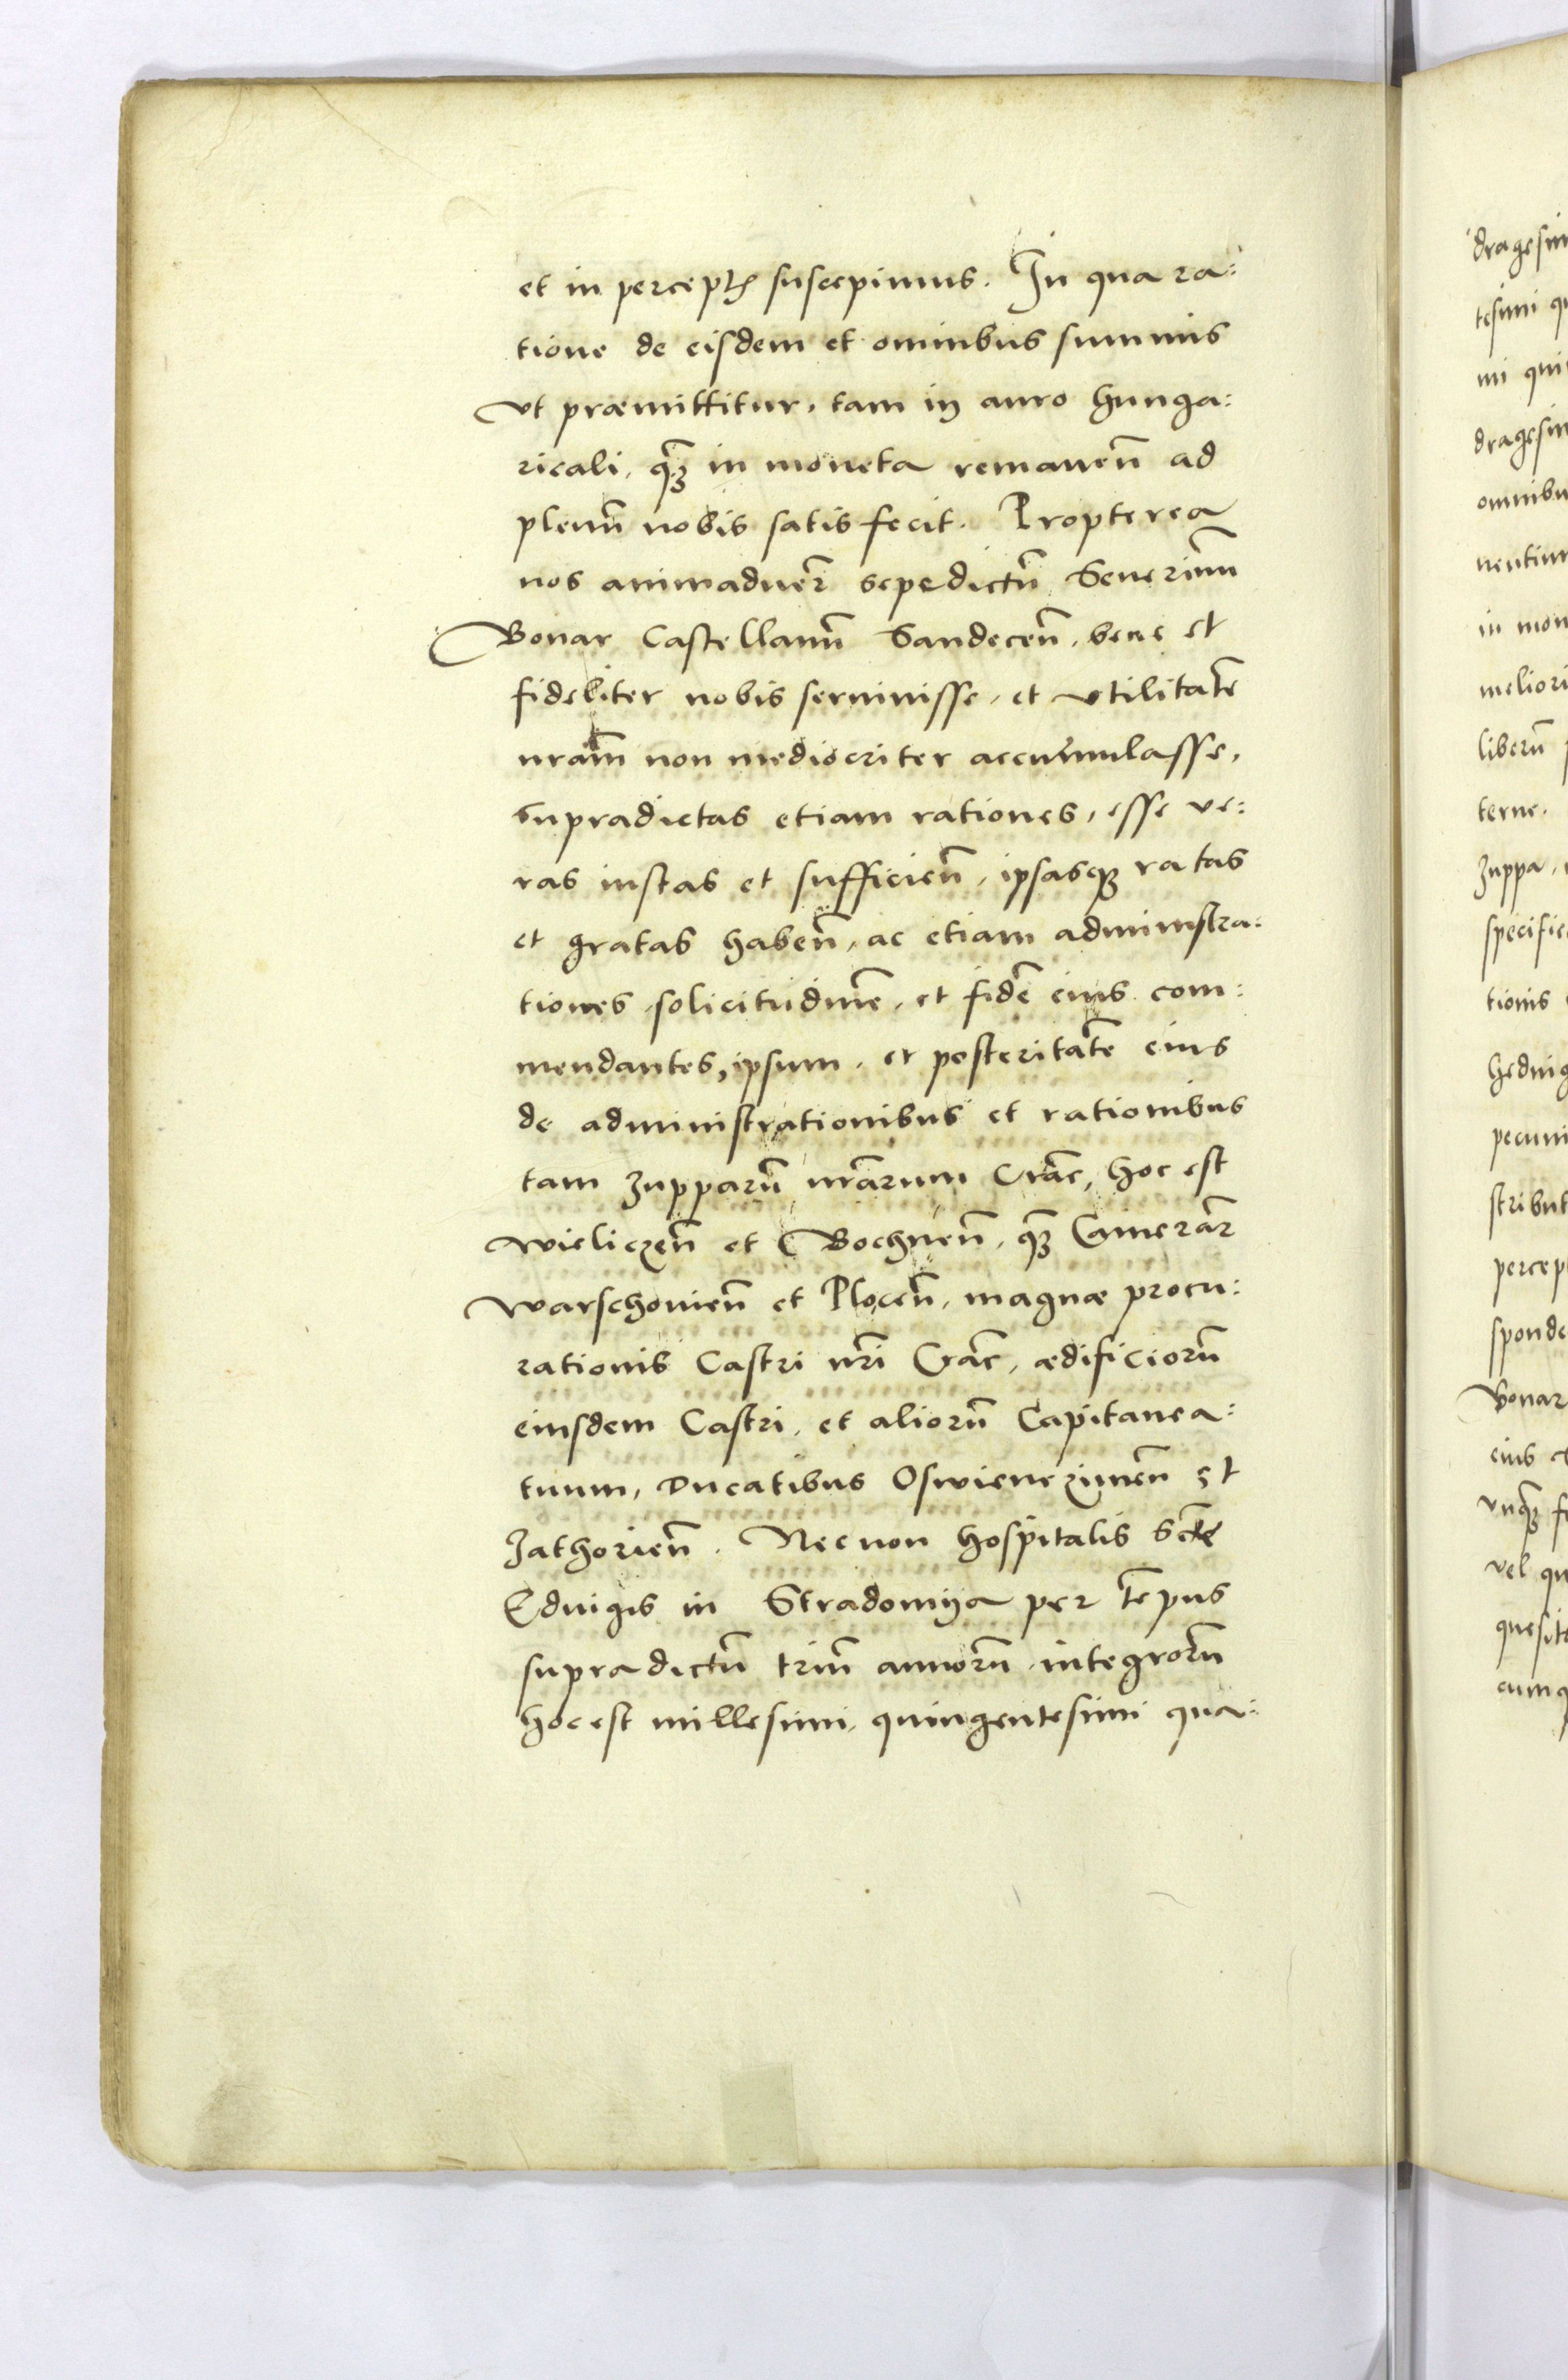 et in percept suscepimus. In qua ra:
tione de eisdem et omnibus summis
vt præmittitur, tam in auro hunga:
ricali, q̄ꝫ in moneta remaneñ ad
plenū nobis satis fecit. Propterea
nos animaduer̄ sepedictū Seuerinū
Bonar Castellanū Sandeceñ, bene et
fideliter nobis seruiuisse, et vtilitatē
nrām non mediocriter accūmulasse,
supradictas etiam rationes, esse ve:
ras iustas et sufficieñ, ipsasqꝫ ratas
et gratas habeñ, ac etiam administra:
tiones solicitudinē, et fidē eius com:
mendantes, ipsum, et posteritatē eius
de administrationibus et rationibus
tam zupparū nrārum Crac̄, hoc est
Wieliczeñ et Bochneñ, q̄ꝫ Camerar̄
Warschouieñ et Ploceñ, magnæ procu:
rationis Castri nr̄i Crac̄, ædificiorū
eiusdem Castri, et aliorū Capitanea:
tuum, Ducatibus Oswienczimeñ et
Zathorieñ. Necnon hospitalis Sctē
Eduigis in Stradomija per tēpus
supradictū triū annorū integrorū
hoc est millesimi, quingentesimi qua:
dragesim
tesimi qu
mi qui
dragesim
omnibu
nentium
in mon
meliori
liberū
terne.
zuppa,
specific
tionis
heduig
pecuni
stribut
percep
sponde
Bonar
eius
vnq̄ꝫ f
vel qu
quesit
cumq